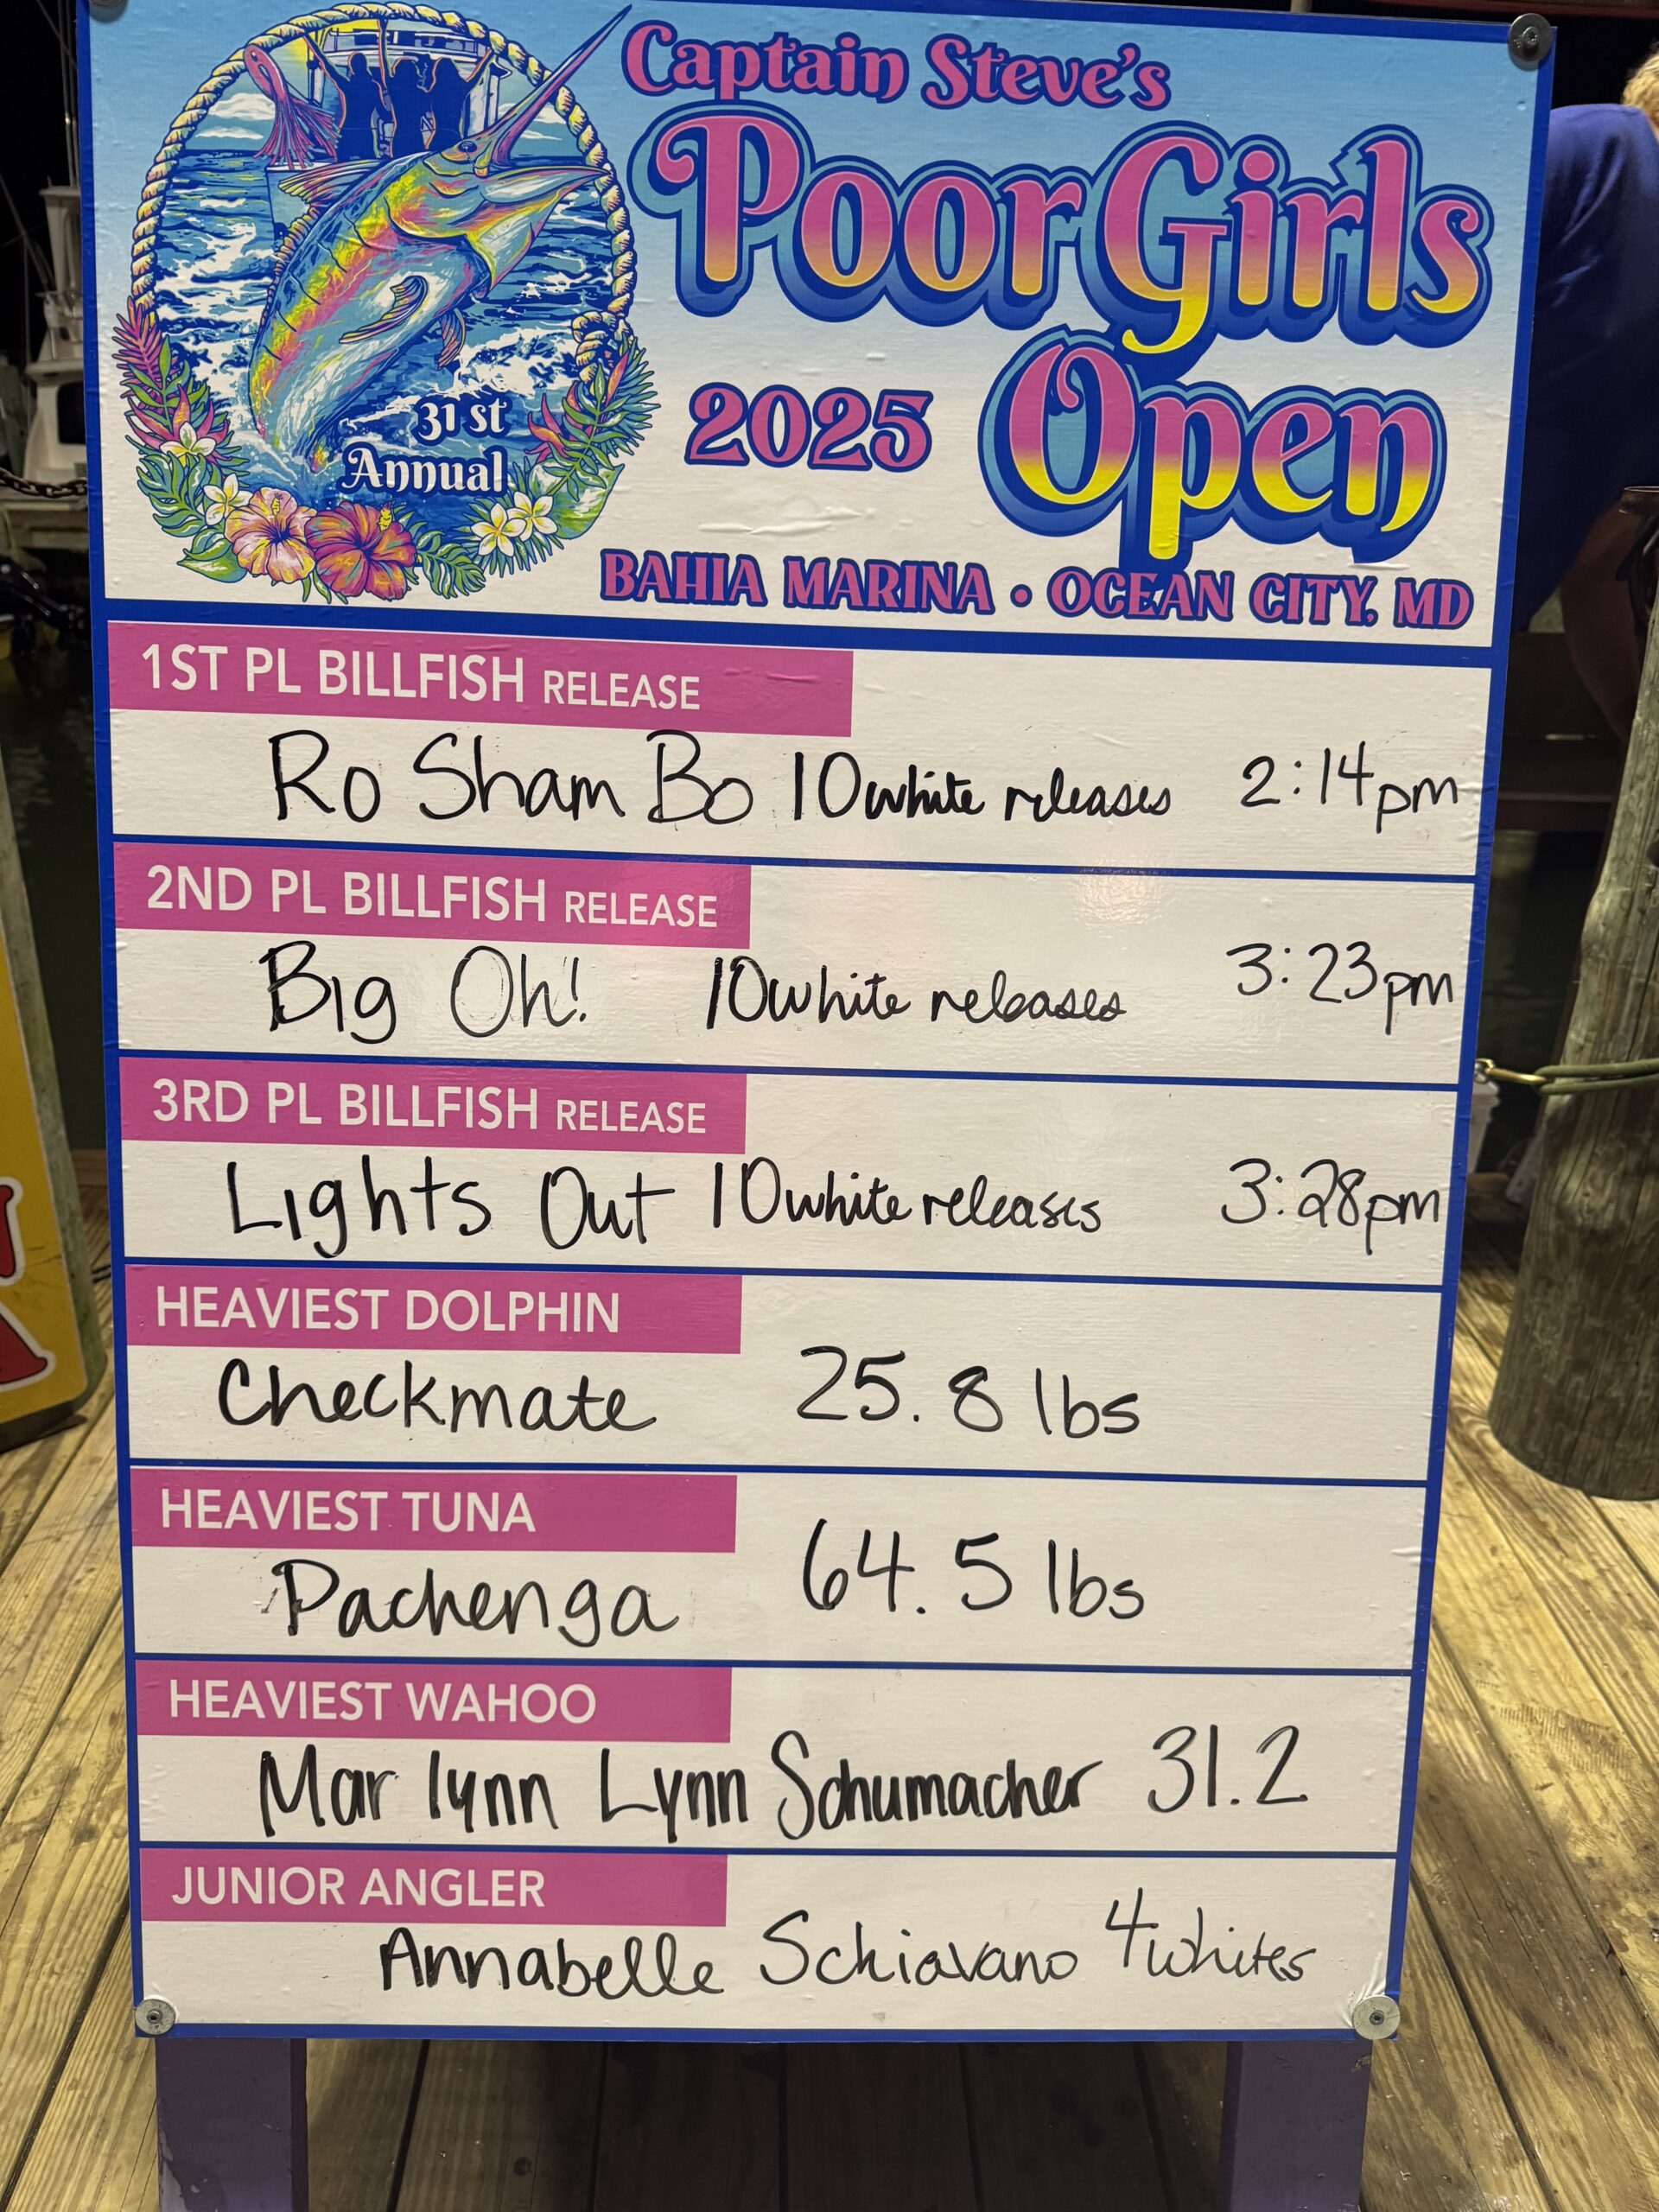 Captain Steve's
Poor Girls
2025 Open
31st
Annual
BAHIA MARINA • OCEAN CITY, MD
1ST PL BILLFISH RELEASE
Ro Sham Bo 10 white releases 2:14pm
2ND PL BILLFISH RELEASE
Big Oh! 10 white releases 3:23pm
3RD PL BILLFISH RELEASE
Lights Out 10 white releases 3:28pm
HEAVIEST DOLPHIN
Checkmate 25.8 lbs
HEAVIEST TUNA
Pachenga 64.5 lbs
HEAVIEST WAHOO
Marlynn Lynn Schumacher 31.2
JUNIOR ANGLER
Annabelle Schiavano 4 whites